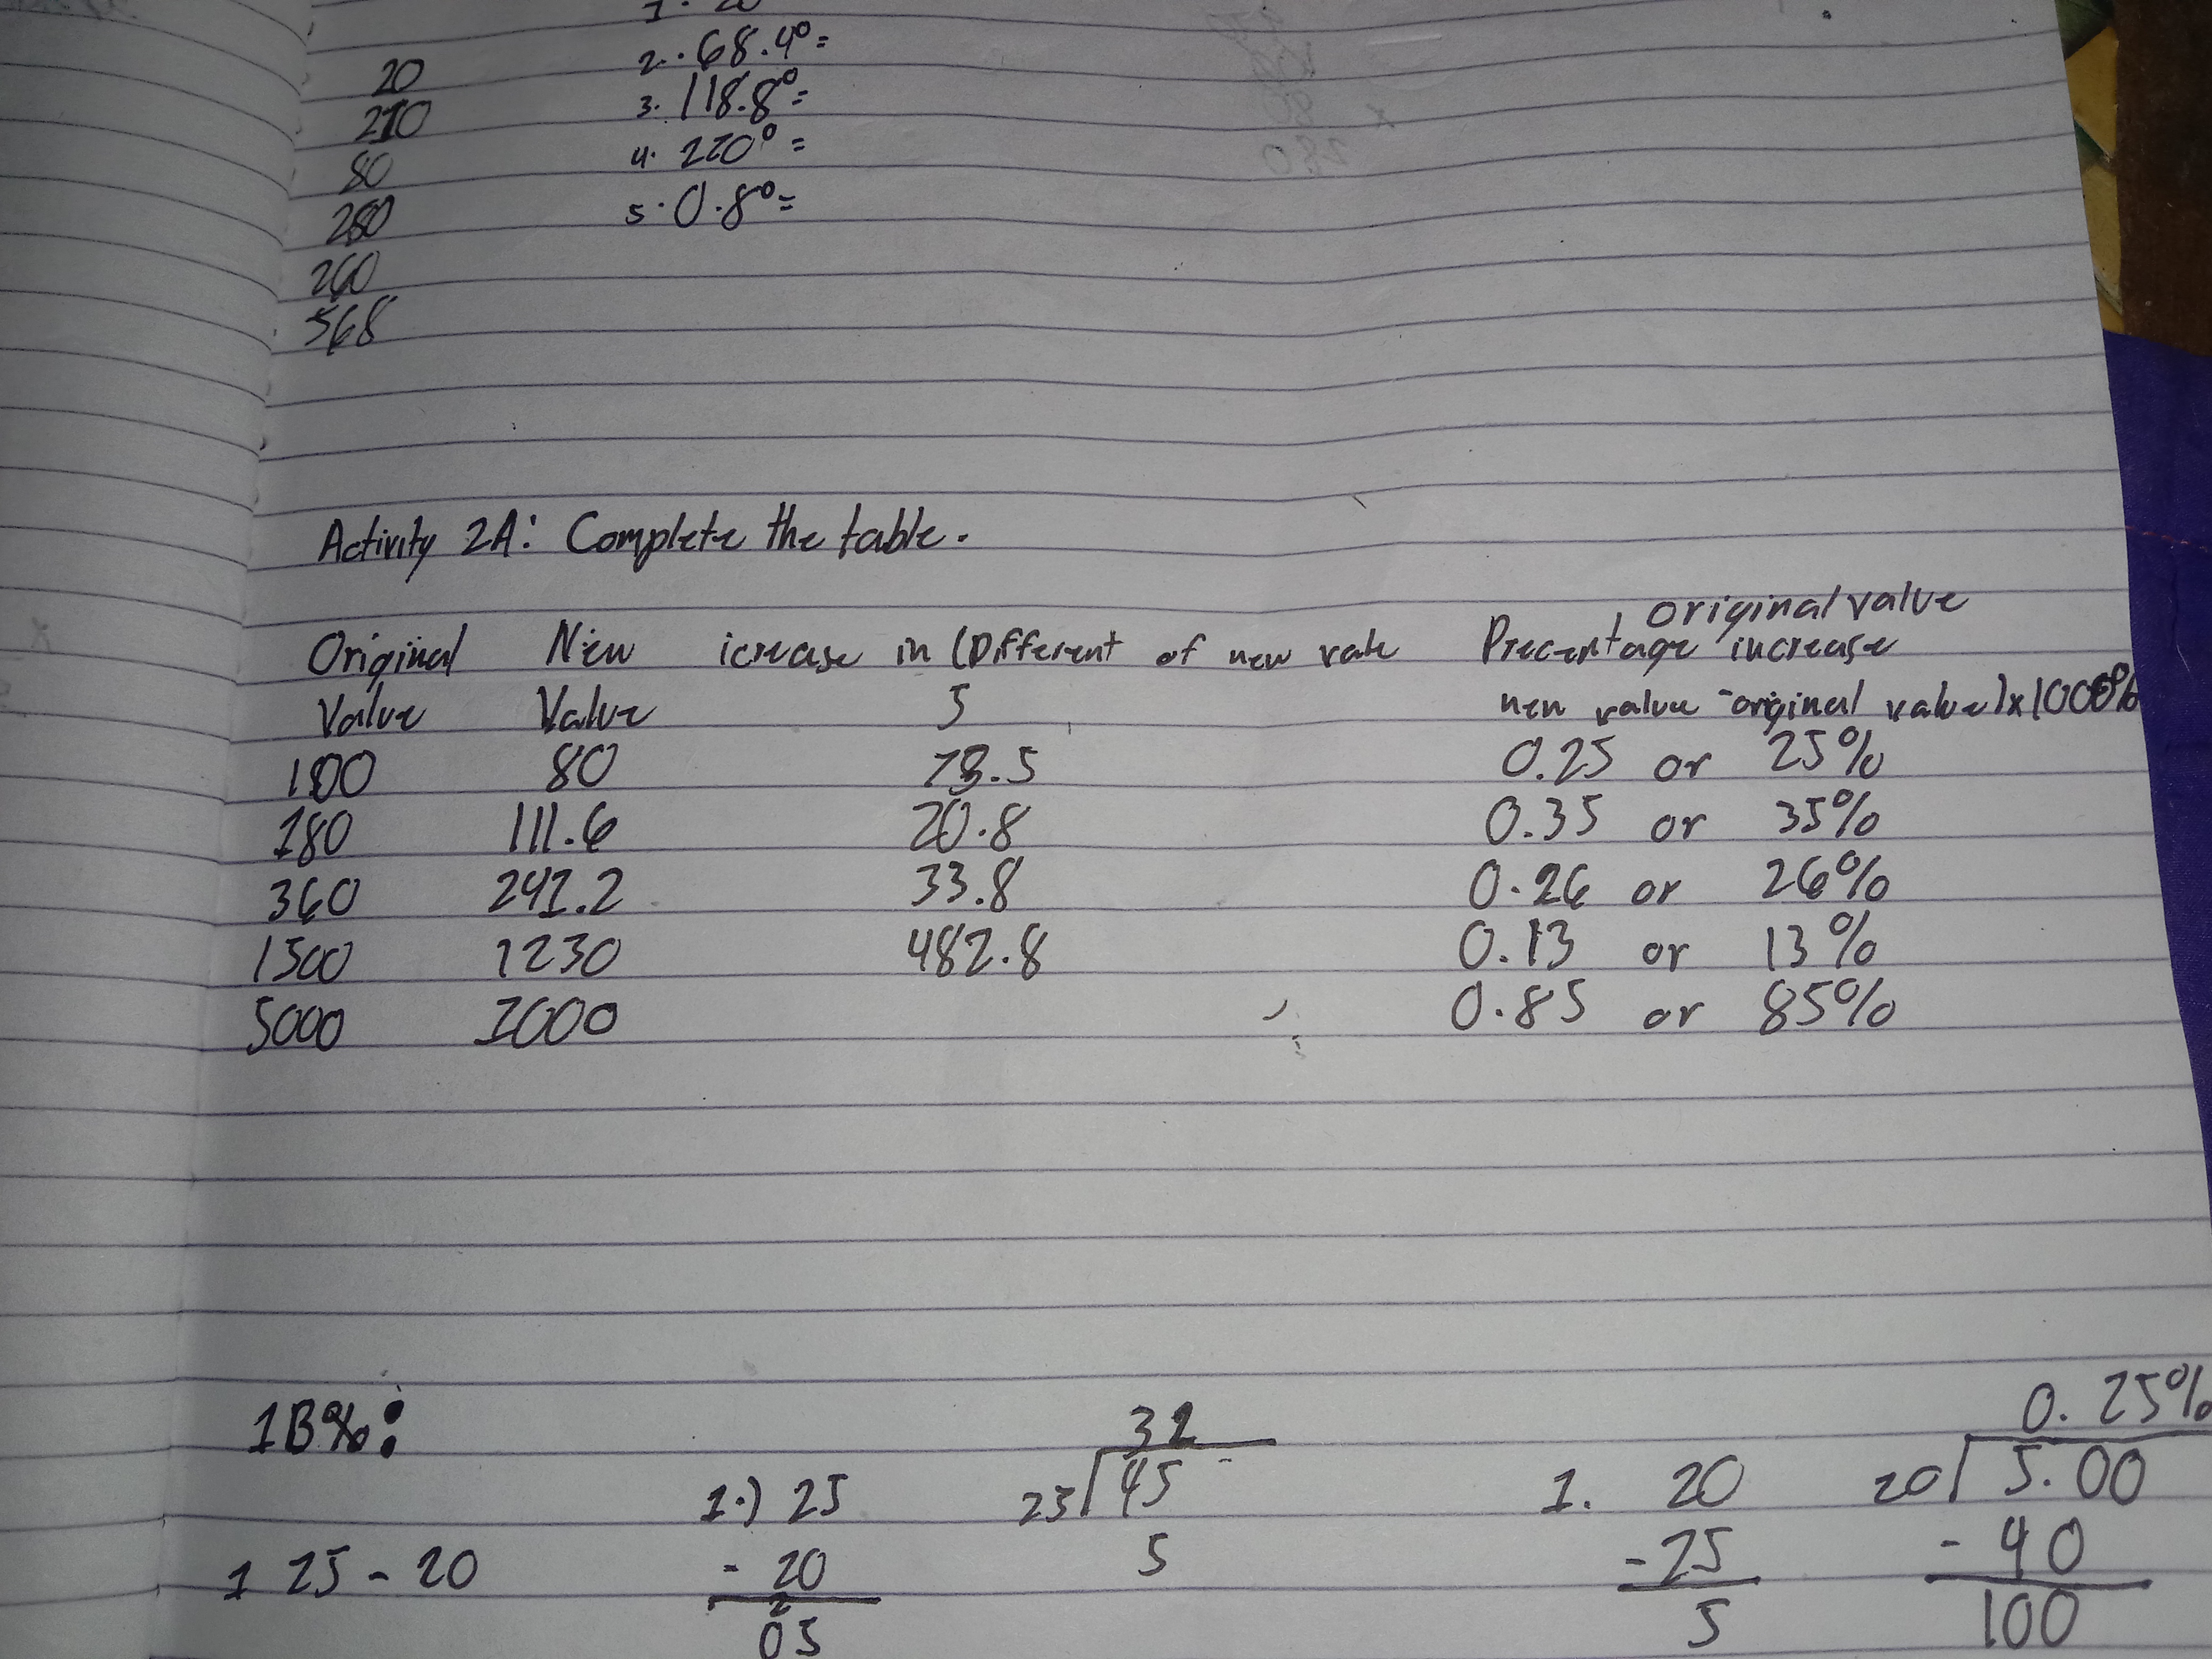 2. 68.4°=
20
3. 118.8°=
210
4. 220°=
80
5. 0.8°=
280
260
568
Activity 2A: Complete the table.
original value
Original New icrease in (Different of new vale Precentage increase
Value Value 5 new value -original value)x100%
100 80 13.5 0.25 or 25%
180 111.6 20.8 0.35 or 35%
360 241.2 33.8 0.26 or 26%
1500 1230 482.8 0.13 or 13%
5000 1000 0.85 or 85%
1B%:
32 0.25%
1.) 25 23 45 1. 20 20 5.00
1 25 - 20 - 20 5 -25 - 40
2
05 5 100